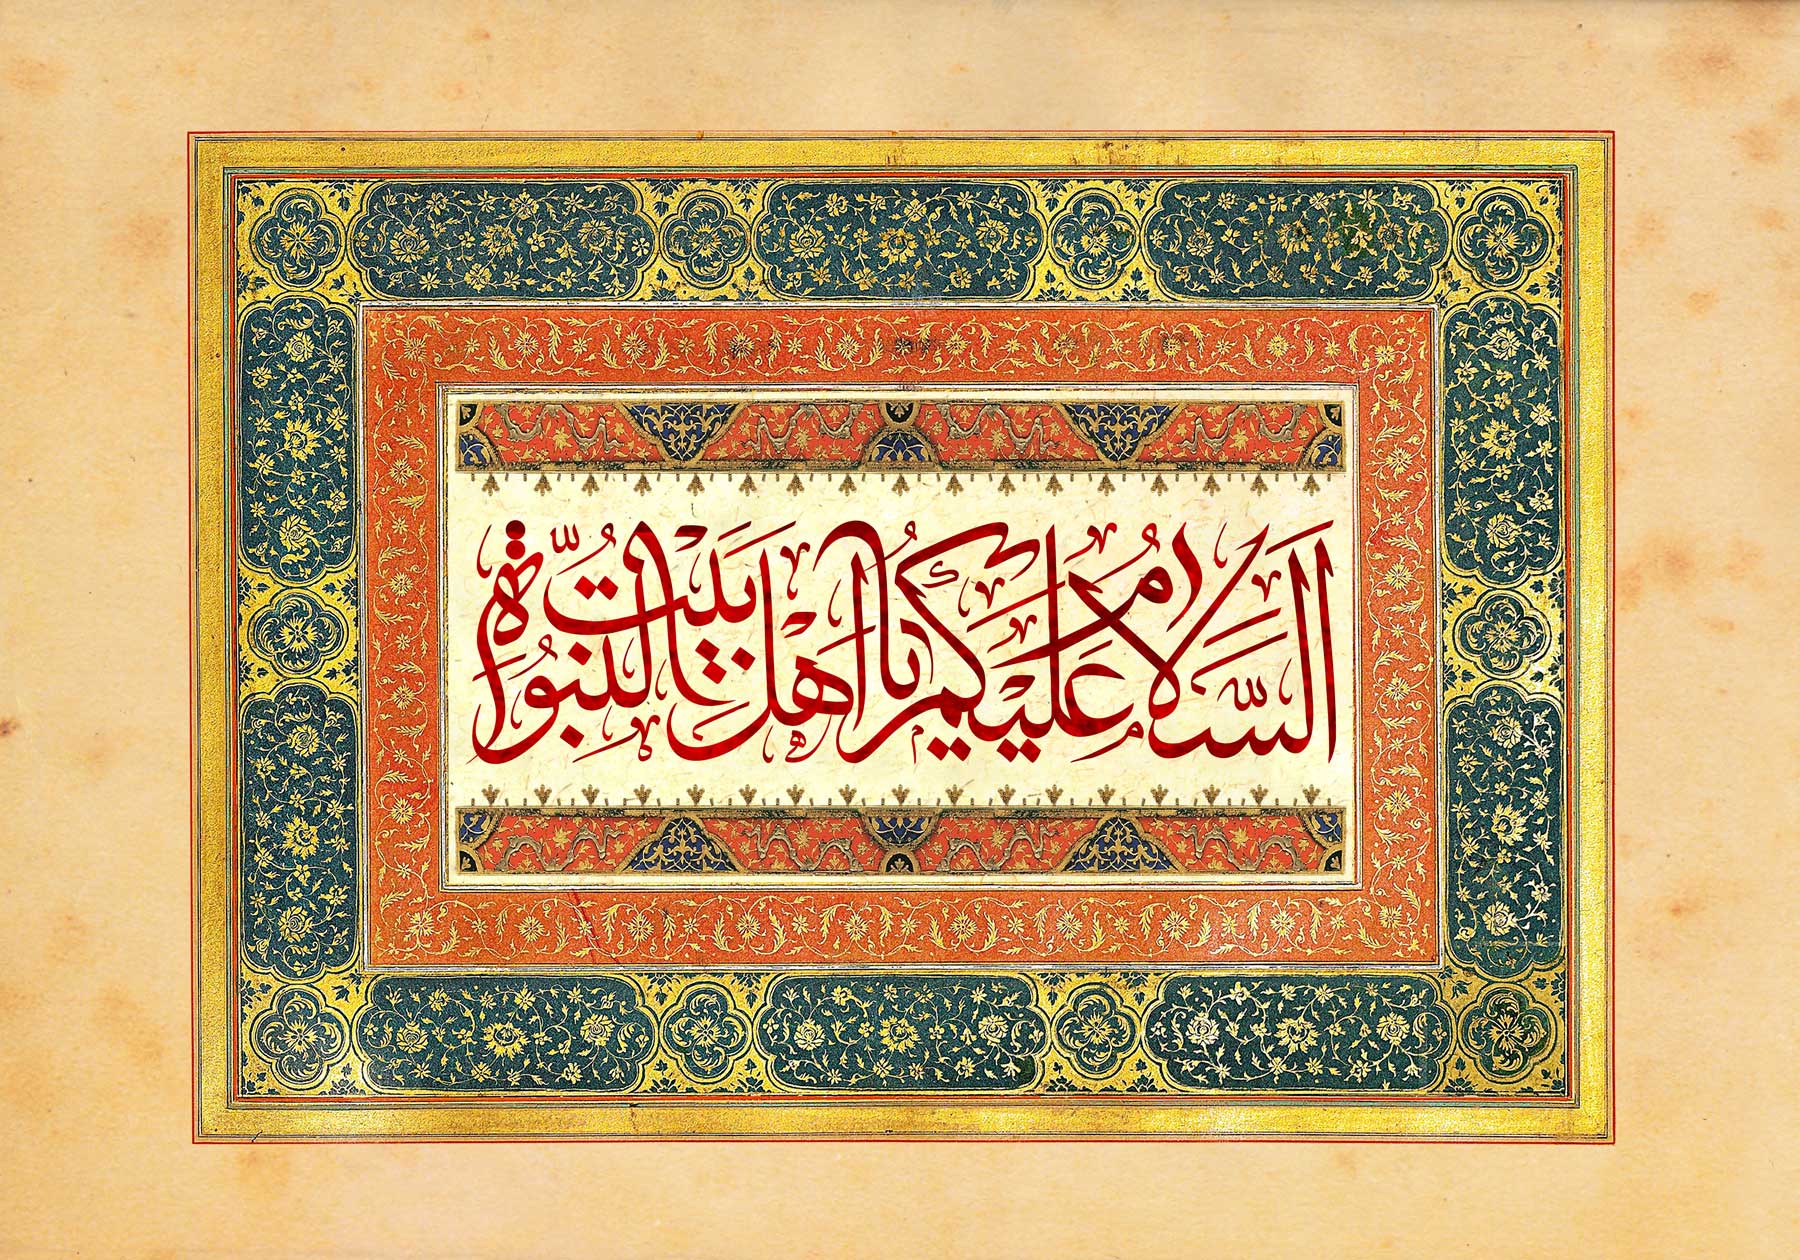 السَّلَامُ عَلَيْكُمْ يَا أَهْلَ بَيْتِ النُّبُوَّةِ